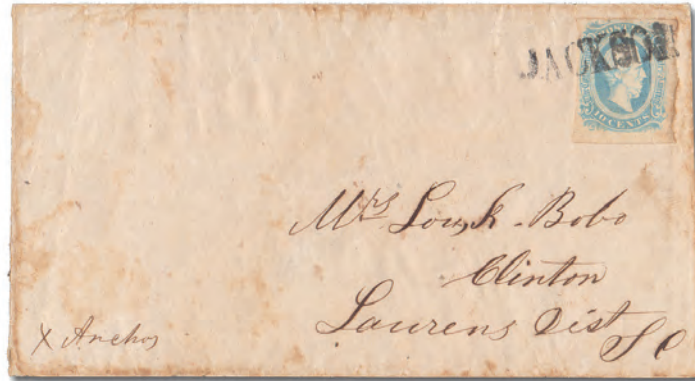 JACKSON
10 CENTS
Mrs Lou, K. Bobo
Clinton
Laurens Dist
S C
X Anchor